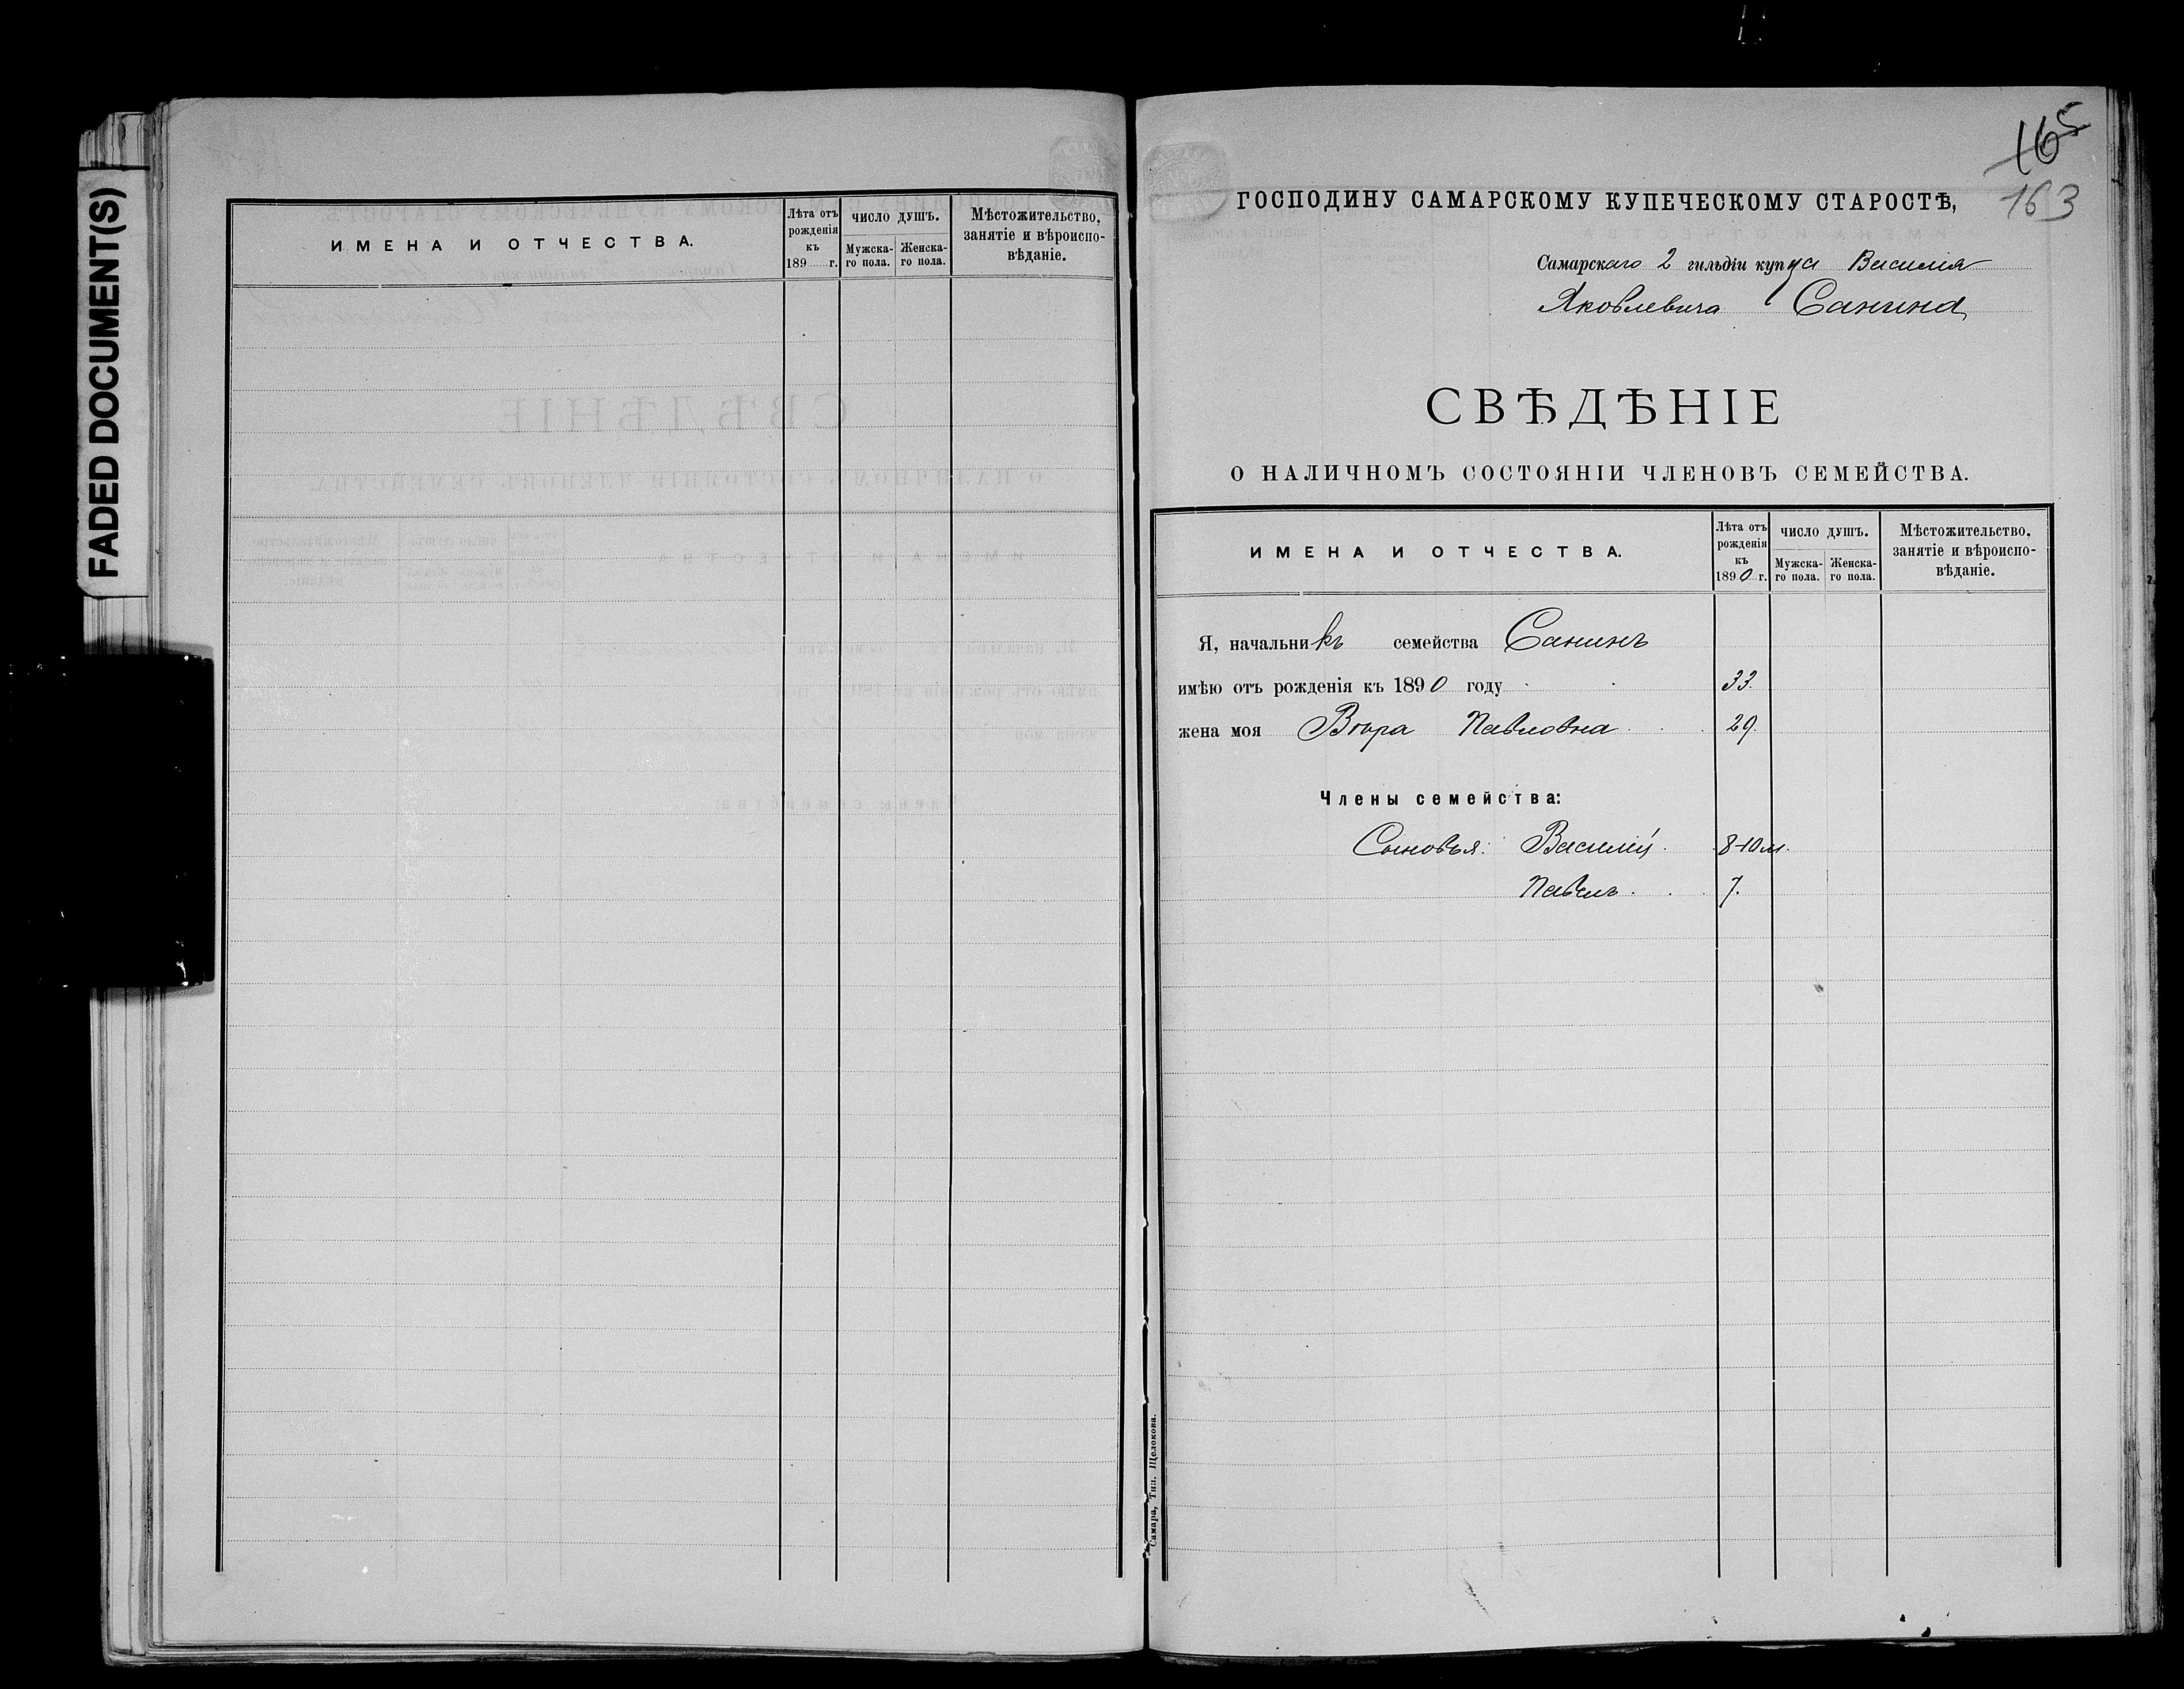 FADED DOCUMENT(S)
ИМЕНА И ОТЧЕСТВА.
Лѣта отъ рожденія къ 189 г.
ЧИСЛО ДУШЪ.
Мужска-го пола.
Женска-го пола.
Мѣстожительство, занятіе и вѣроиспо-вѣданіе.
165
163
ГОСПОДИНУ САМАРСКОМУ КУПЕЧЕСКОМУ СТАРОСТѢ,
Самарскаго 2 гильдіи купца Василія
Яковлевича Санина
СВѢДѢНІЕ
О НАЛИЧНОМЪ СОСТОЯНІИ ЧЛЕНОВЪ СЕМЕЙСТВА.
ИМЕНА И ОТЧЕСТВА.
Лѣта отъ рожденія къ 1890 г.
ЧИСЛО ДУШЪ.
Мужска-го пола.
Женска-го пола.
Мѣстожительство, занятіе и вѣроиспо-вѣданіе.
Я, начальникъ семейства Санинъ
имѣю отъ рожденія къ 1890 году 33.
жена моя Вѣра Павловна 29.
Члены семейства:
Сыновья: Василій 8-10 м.
Павелъ 7.
Самара, Тип. Щелокова.